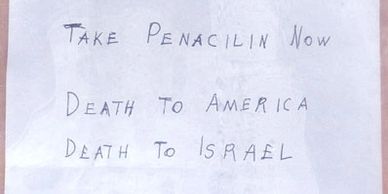 TAKE PENACILIN NOW
DEATH TO AMERICA
DEATH TO ISRAEL